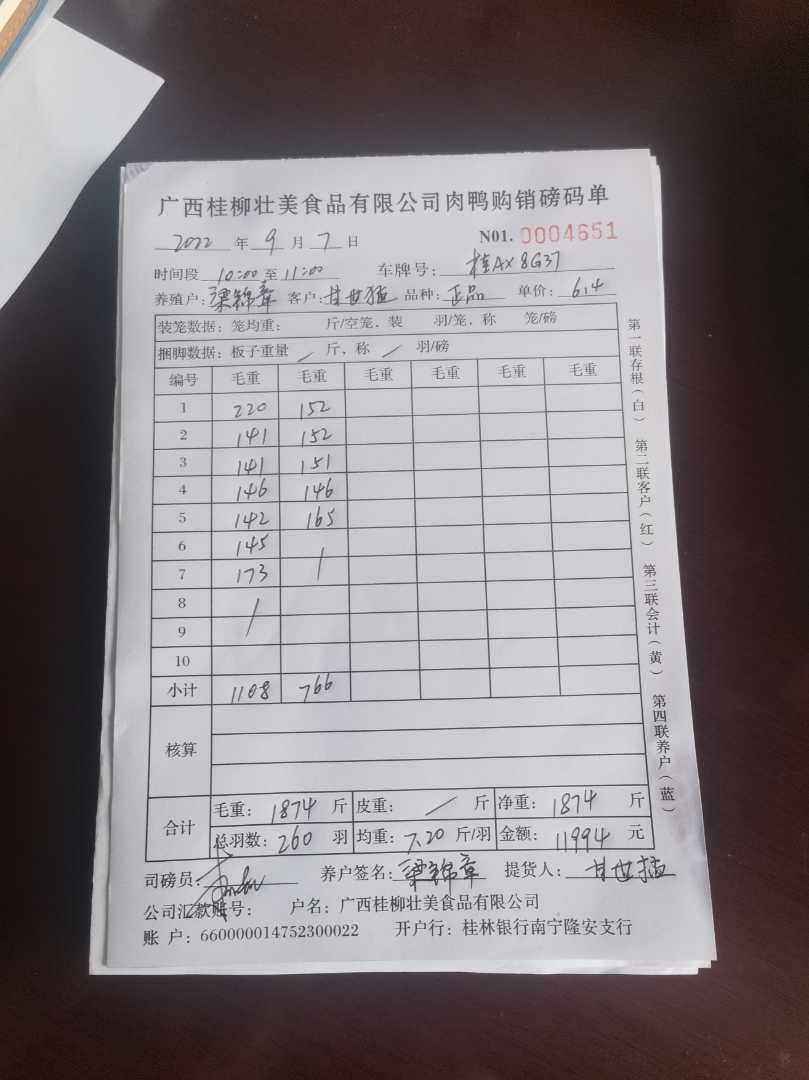 广西桂柳壮美食品有限公司肉鸭购销磅码单
2022 年 9 月 7 日 N01. 0004651
时间段 10:00 至 11:00 车牌号: 桂AX8G37
养殖户: 梁锦章 客户: 甘世猛 品种: 正品 单价: 6.4
装笼数据: 笼均重: 斤/空笼, 装 羽/笼, 称 笼/磅
捆脚数据: 板子重量 / 斤, 称 / 羽/磅
编号 毛重 毛重 毛重 毛重 毛重 毛重
1 220 152
2 141 152
3 141 151
4 146 146
5 142 165
6 145
7 173 /
8 /
9
10
小计 1108 766
核算
合计 毛重: 1874 斤 皮重: / 斤 净重: 1874 斤
总羽数: 260 羽 均重: 7.20 斤/羽 金额: 11994 元
司磅员: 养户签名: 梁锦章 提货人: 甘世猛
公司汇款账号: 户名: 广西桂柳壮美食品有限公司
账 户: 660000014752300022 开户行: 桂林银行南宁隆安支行
第一联存根(白) 第二联客户(红) 第三联会计(黄) 第四联养户(蓝)